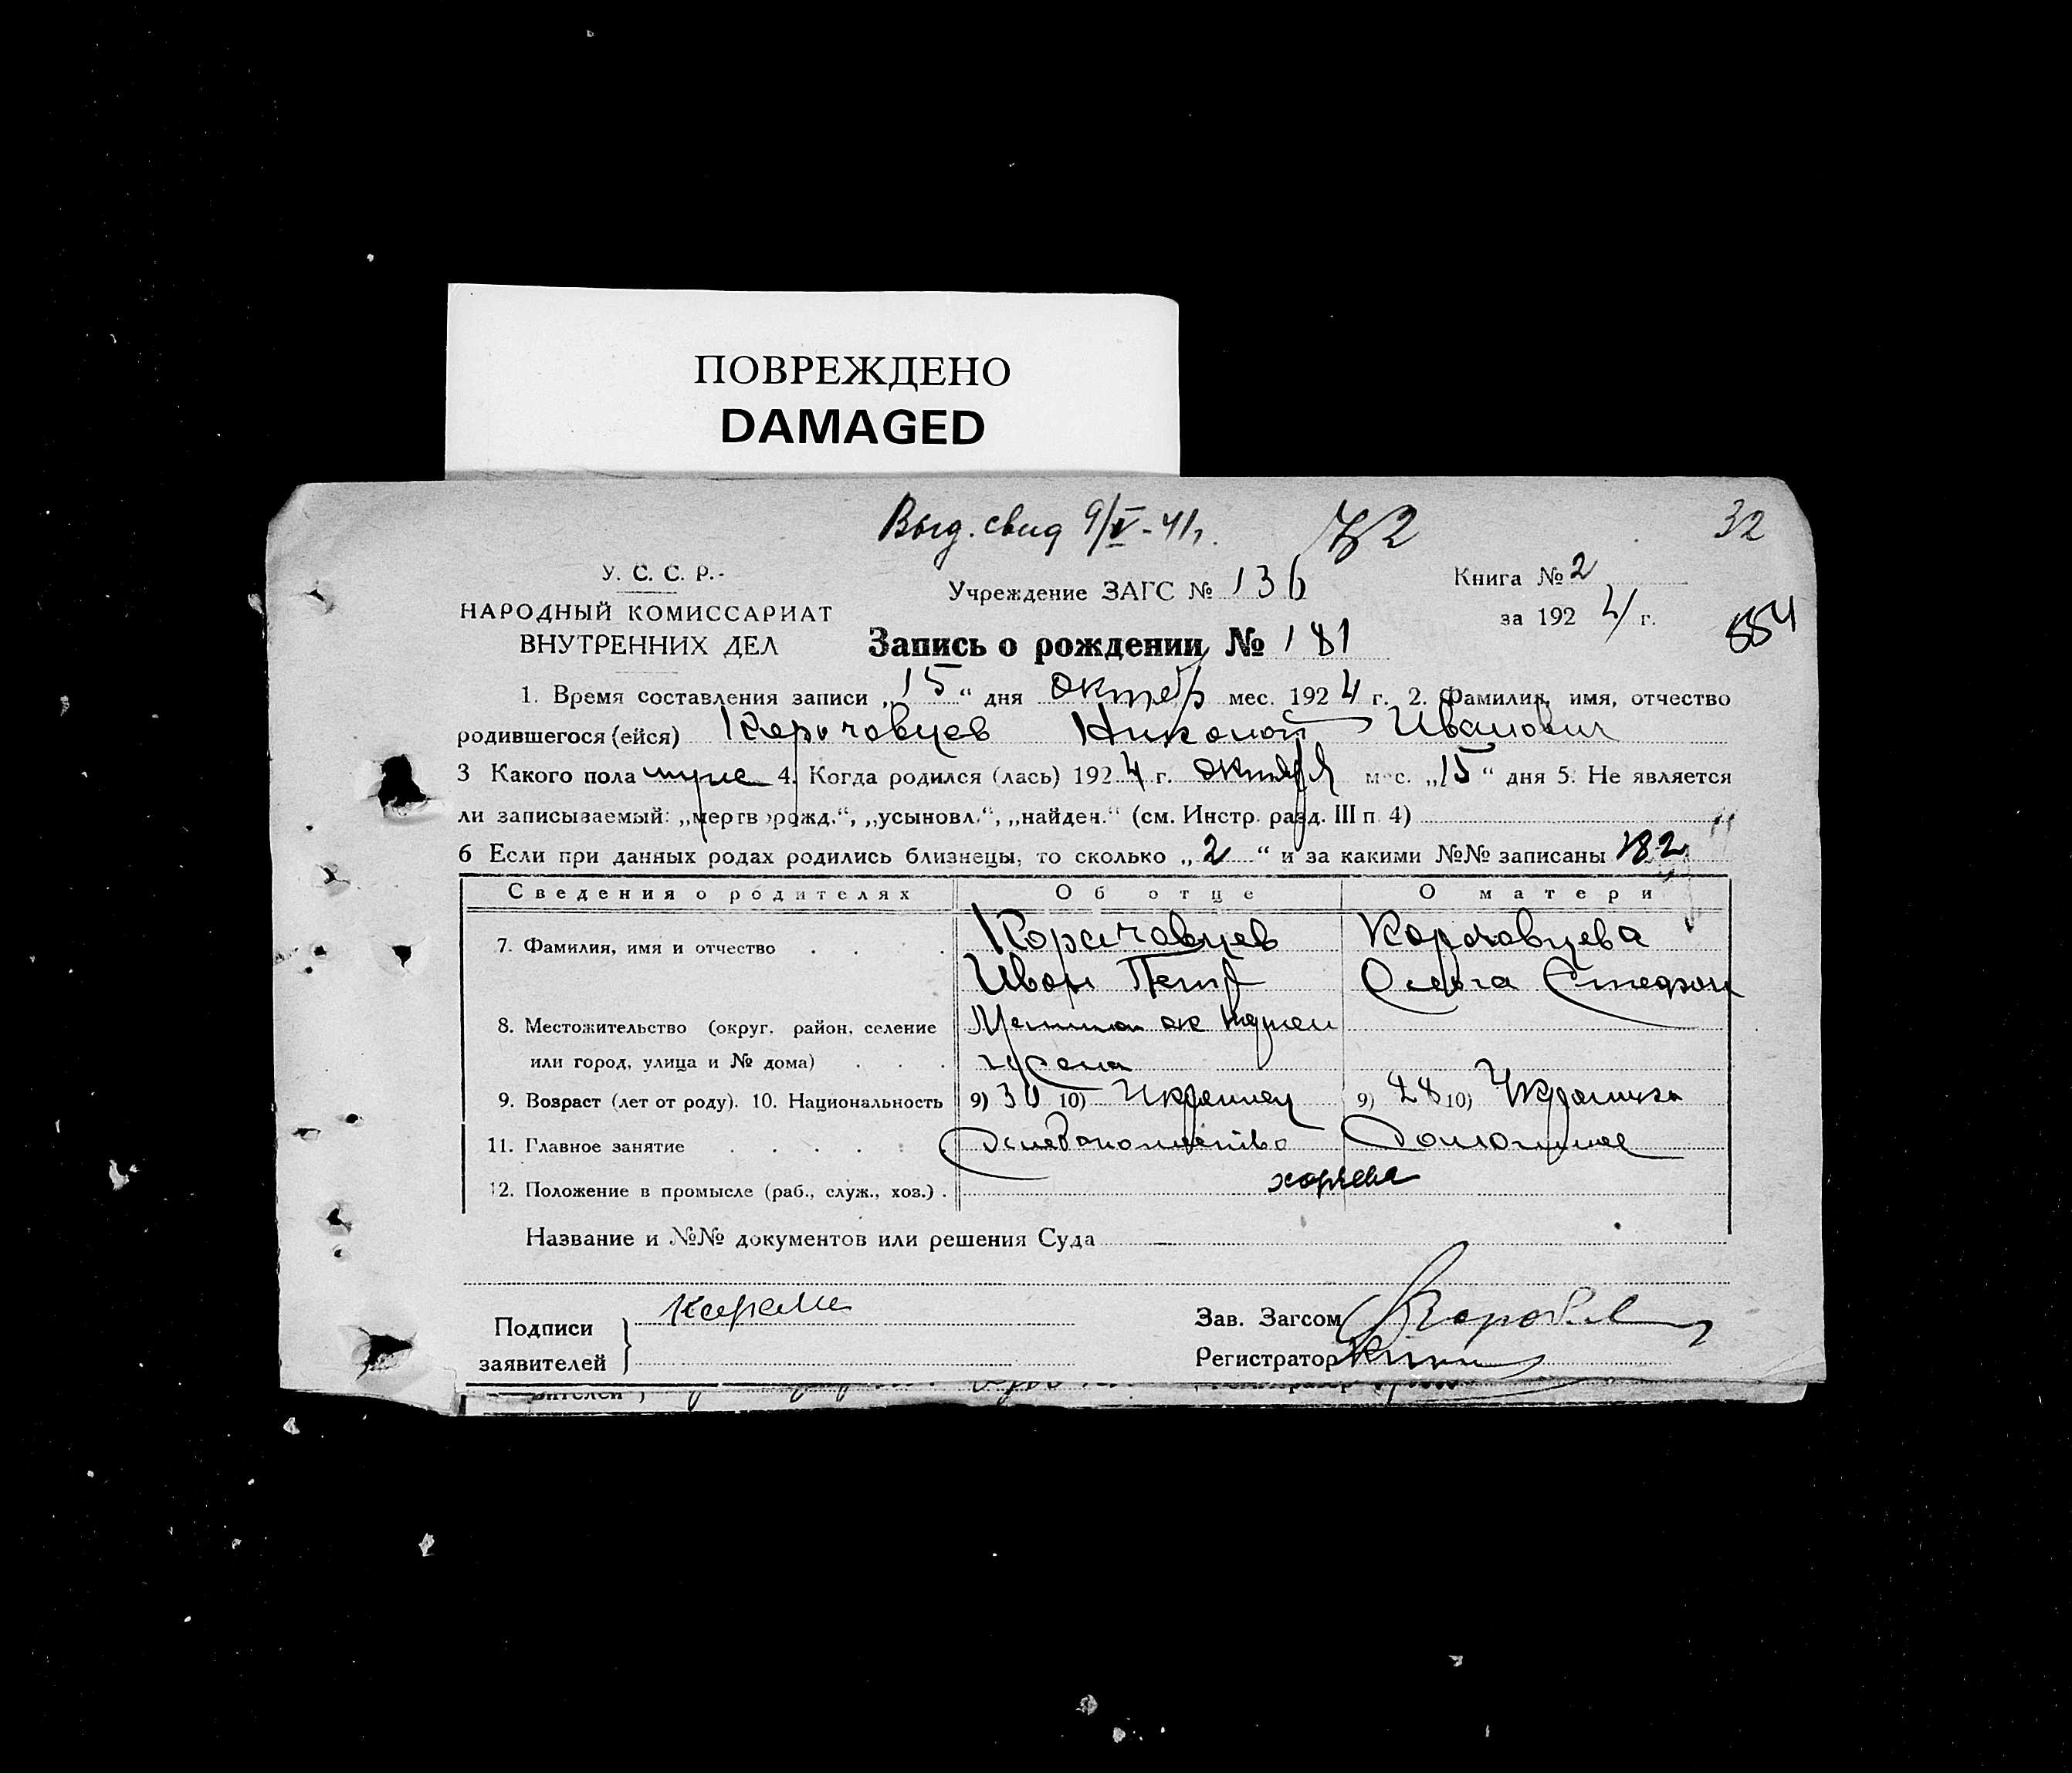 ПОВРЕЖДЕНО
DAMAGED
Выд. свид 9/V-41г. 32
У. С. С. Р.
Учреждение ЗАГС № 136 Книга № 2
НАРОДНЫЙ КОМИССАРИАТ за 1924 г. 554
ВНУТРЕННИХ ДЕЛ Запись о рождении № 181
1. Время составления записи „15“ дня октябр мес. 1924 г. 2. Фамилия, имя, отчество
родившегося (ейся) Николай Иванович
3 Какого пола муж 4. Когда родился (лась) 1924 г. октября мес. „15“ дня 5. Не является
ли записываемый: „мертворожд.“, „усыновл.“, „найден.“ (см. Инстр. разд. III п. 4)
6 Если при данных родах родились близнецы, то сколько „2“ и за какими №№ записаны 182
Сведения о родителях Об отце О матери
7. Фамилия, имя и отчество
Иван Петр Ольга Стефан
8. Местожительство (округ, район, селение
или город, улица и № дома)
9. Возраст (лет от роду). 10. Национальность 9) 30 10) Украинец 9) 28 10) Украинка
11. Главное занятие
12. Положение в промысле (раб., служ., хоз.) хозяева
Название и №№ документов или решения Суда
Подписи
заявителей
Зав. Загсом
Регистратор